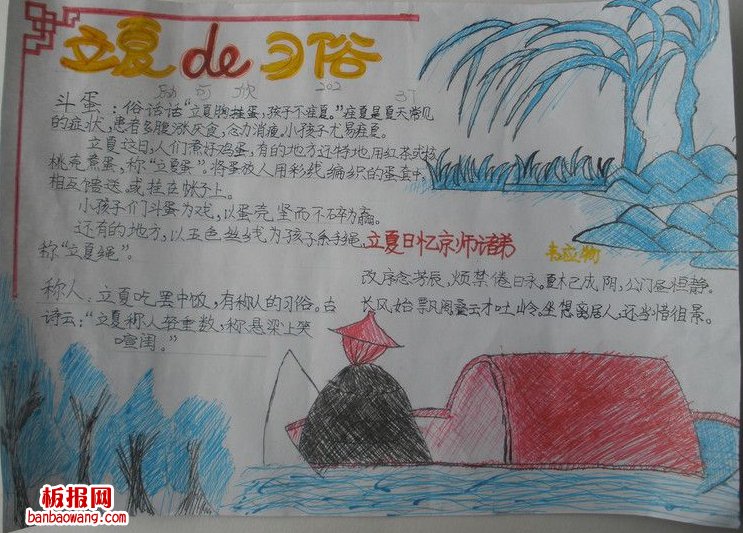 立夏 de 习俗
斗蛋：俗话话“立夏胸挂蛋，孩子不疰夏。”疰夏是夏天常见
的症状，患者多腹涨厌食，乏力消瘦，小孩子尤易疰夏。
立夏这日，人们煮好鸡蛋，有的地方还特地用红茶或
桃壳煮蛋，称“立夏蛋”。将蛋放入用彩线编织的蛋套中，
相互馈送，或挂在帐子上。
小孩子们斗蛋为戏，以蛋壳坚而不碎为赢。
还有的地方，以五色丝线为孩子系手绳，
称“立夏绳”。
称人：立夏吃罢中饭，有称人的习俗。古
诗云：“立夏称人轻重数，称悬梁上笑
喧闺。”
立夏日忆京师诸弟
韦应物
改序念芳辰，烦襟倦日永。夏木已成阴，公门昼恒静。
长风始飘阁，叠云才吐岭。坐想离居人，还当惜徂景。
板报网
banbaowang.com